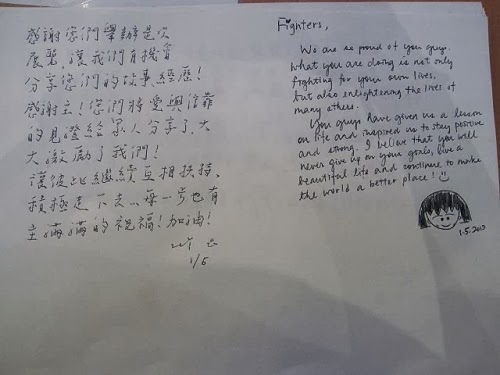 感謝您們舉辦是次
展覽,讓我們有機會
分享您們的故事、經歷!
感謝主!您們將愛與信靠
的見證給眾人分享了,大
大激勵了我們!
讓彼此繼續互相扶持、
積極走下去...每一步也有
主滿滿的祝福!加油!
1/5
Fighters,
We are so proud of you guys.
What you are doing is not only
fighting for your own lives,
but also enlightening the lives of
many others.
You guys have given us a lesson
on life and inspired us to stay positive
and strong. I believe that you will
never give up on your goals, live a
beautiful life and continue to make
the world a better place!
1-5-2012